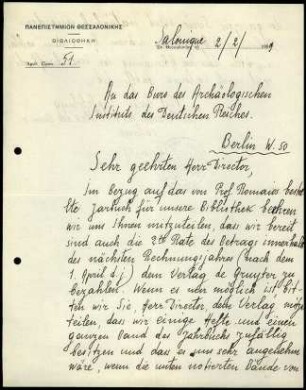 ΠΑΝΕΠΙΣΤΗΜΙΟΝ ΘΕΣΣΑΛΟΝΙΚΗΣ
ΒΙΒΛΙΟΘΗΚΗ
Ἀριθ. Πρωτ. 51
Salonique 2/2/
An das Buro des Archäologischen
Instituts des Deutschen Reiches.
Berlin W. 50
Sehr geehrten Herr Director,
Im Bezug auf das von Prof. Romaios bestel
lte Jarbuch für unsere Bibliothek beehren
wir uns Ihnen mitzuteilen, das wir bereit
sind auch die 2te Rate des Betrags innerhalb
des nächsten Rechnungsjahres (nach dem
1. April d. j) dem Verlag de Gruyter zu
bezahlen. Wenn es nun möglich ist bit-
ten wir Sie, Herr Director, dem Verlag mitzu
teilen, dass wir einige Hefte und einen
ganzen Band des Jarbuchs zufällig
besitzen und das es uns sehr angenehm
wäre, wenn die unten notierten Bände von